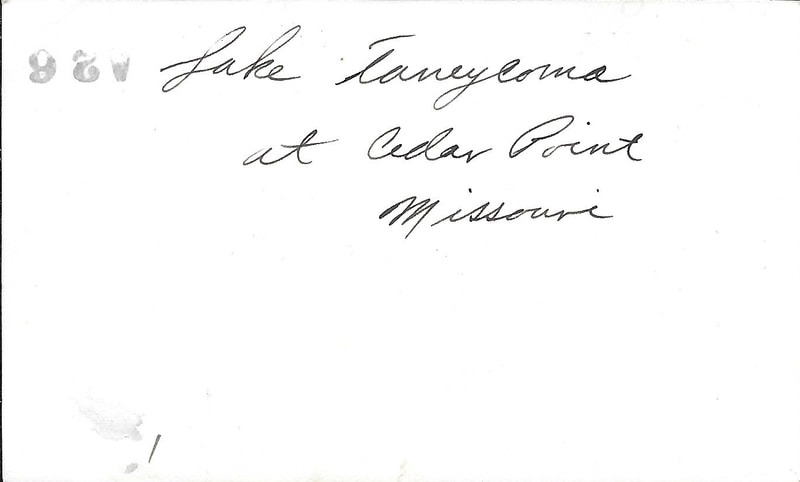 Lake Taneycoma
at Cedar Point
Missouri